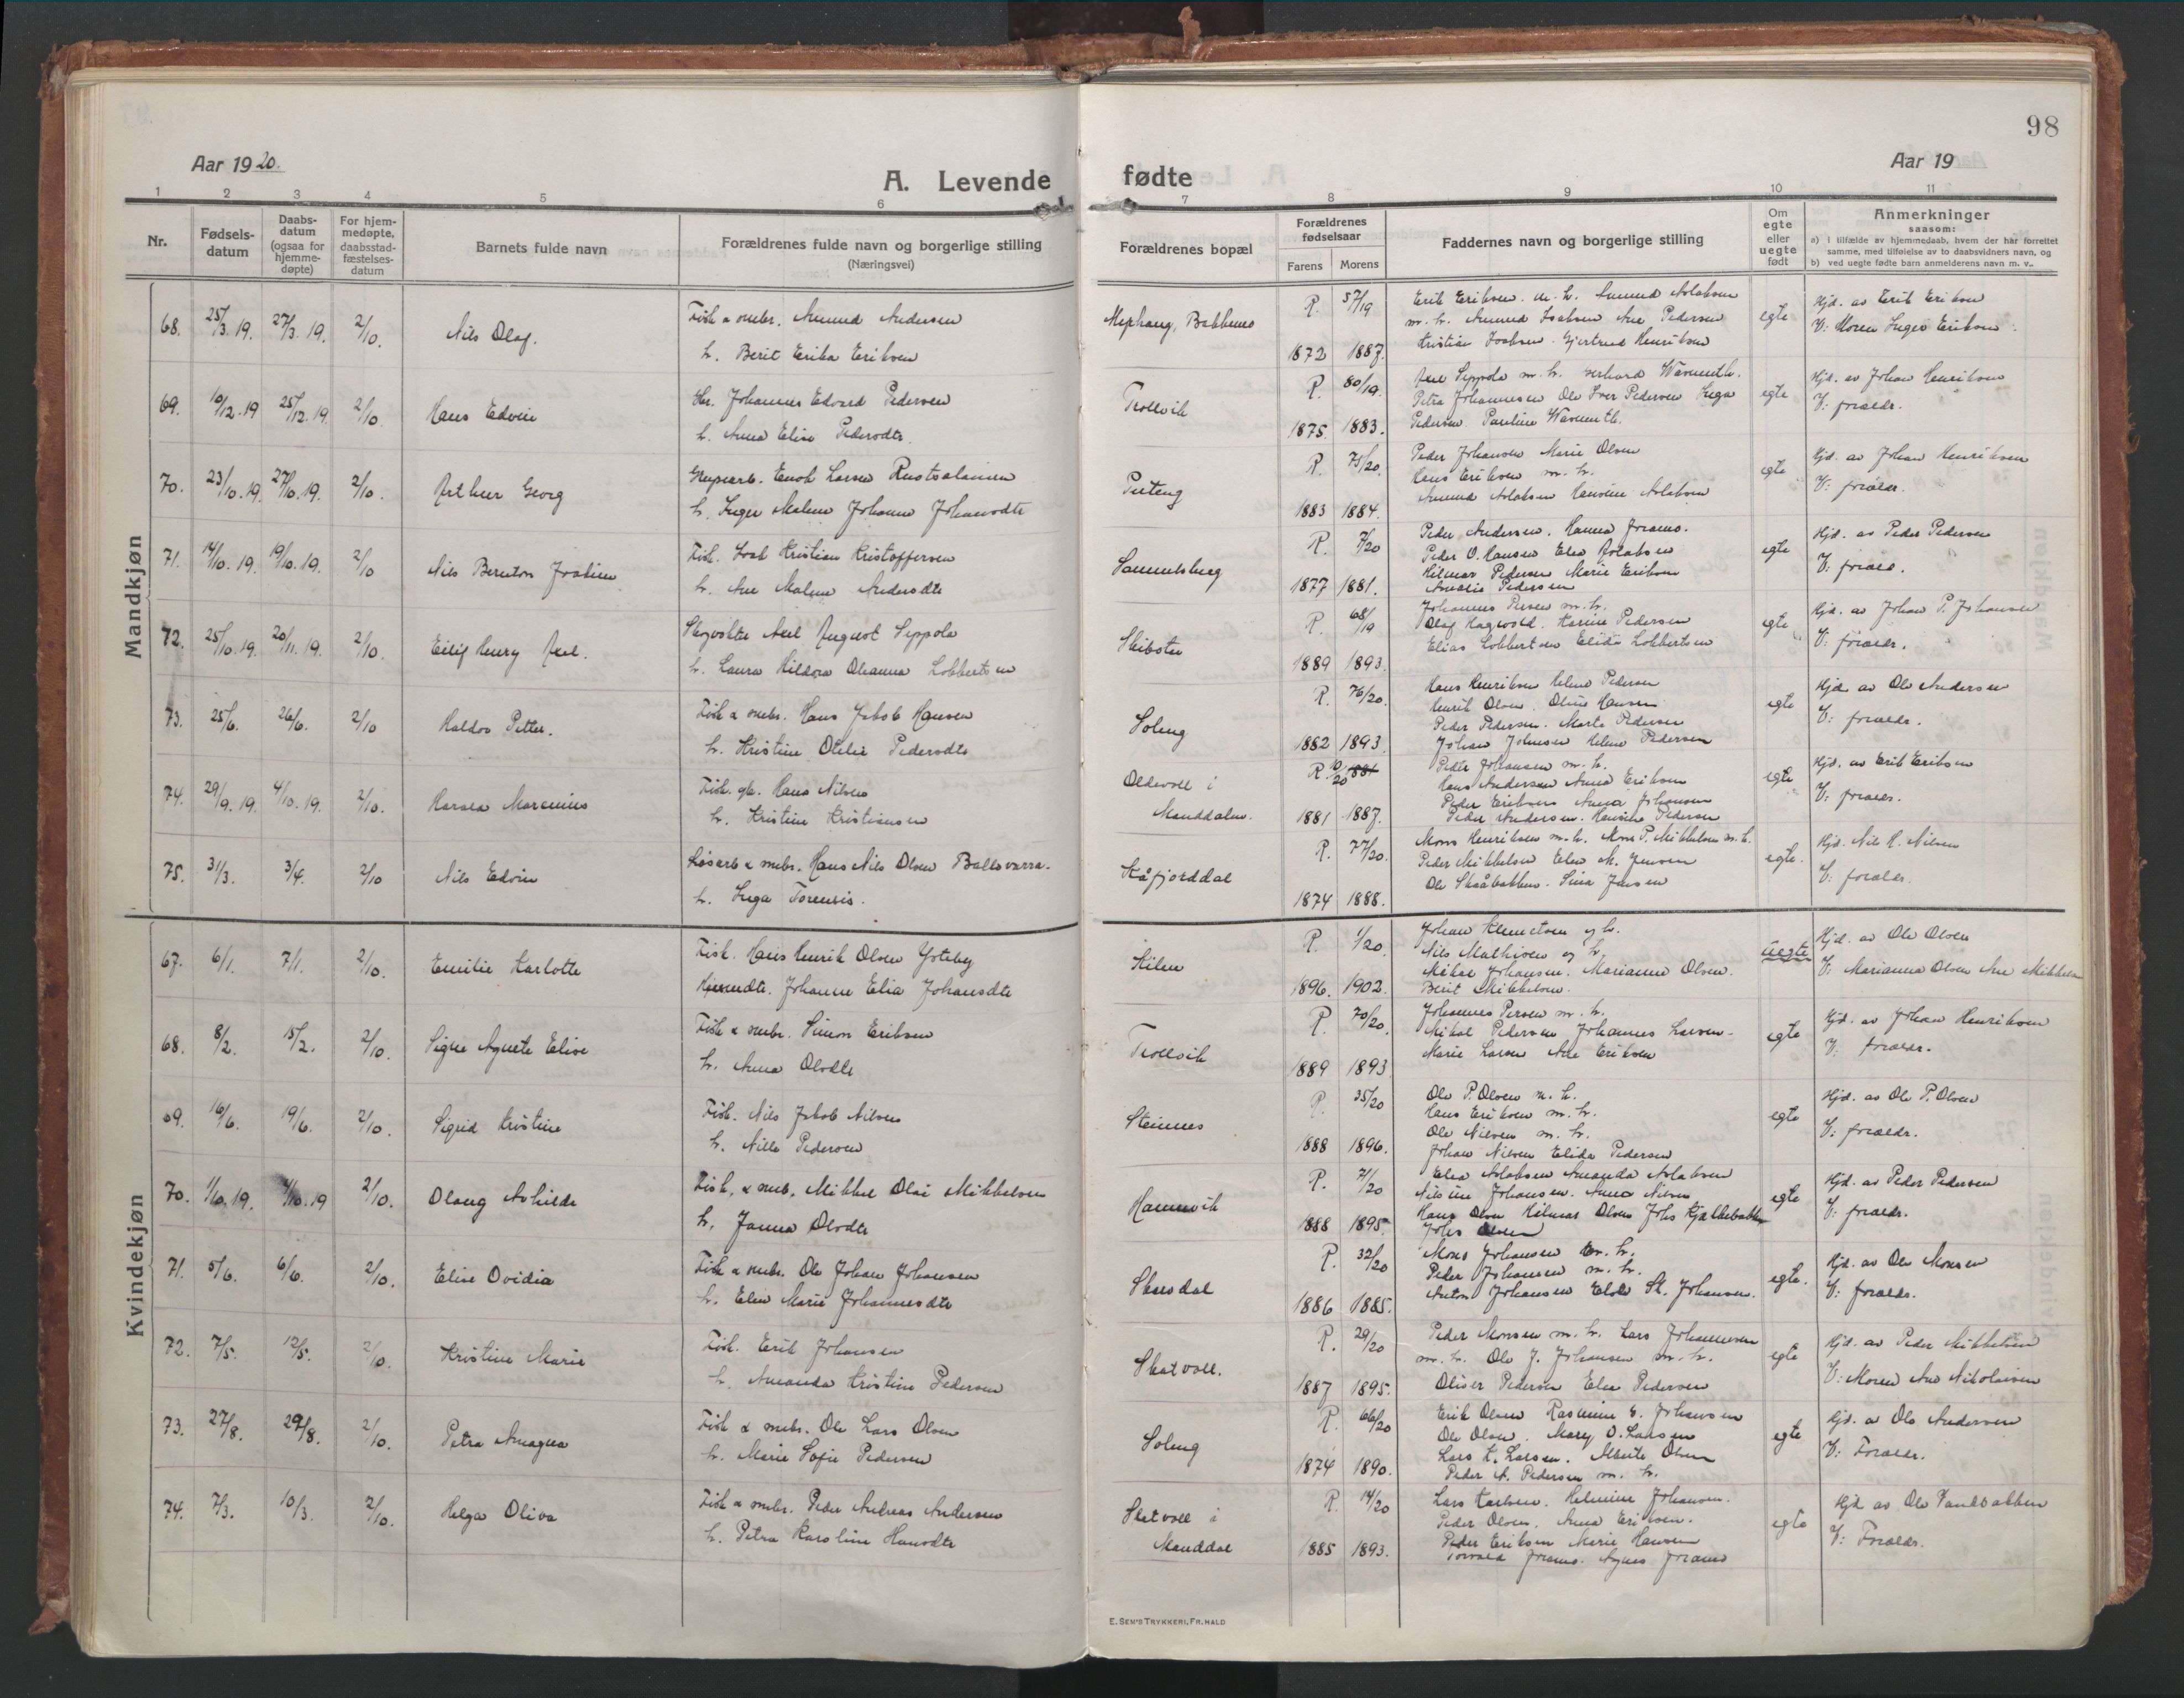 98
Aar 1920.
A. Levende fødte
Aar 19
1 2 3 4 5 6 7 8 9 10 11
Nr.
Fødsels-
datum
Daabs-
datum
(ogsaa for
hjemme-
døpte)
For hjem-
medøpte,
daabsstad-
fæstelses-
datum
Barnets fulde navn
Forældrenes fulde navn og borgerlige stilling
(Næringsvei)
Forældrenes bopæl
Forældrenes
fødselsaar
Farens Morens
Faddernes navn og borgerlige stilling
Om
egte
eller
uegte
født
Anmerkninger
saasom:
a) i tilfælde av hjemmedaab, hvem der har forrettet
samme, med tilføielse av to daabsvidners navn, og
b) ved uegte fødte barn anmelderens navn m. v..
Mandkjøn
68. 25/3.19. 27/3.19. 2/10. Nils Olaf.
Fisk & smbr. Amund Andersen
h. Berit Erika Eriksen
R. 57/19
1872 1887.
Erik Eriksen m. h. Amund Aslaksen
m. h. Amund Isaksen Ane Pedersen
Kristian Isaksen. Gjertrud Henriksen
egte
Hjd. av Erik Eriksen
V: Moren Inger Eriksen.
69. 10/12.19 25/12.19. 2/10. Hans Edvin
Johannes Edvard Pedersen
h. Anna Elise Pedersdtr.
Trollvik
R. 80/19.
1875. 1883.
Axel Seppola m. h.
Petra Johannesen Ole Iver Pedersen Inga
Pedersen Pauline
egte
Hjd. av Johan Henriksen
V: foraldr.
70. 23/10.19. 27/10.19. 2/10. Arthur Georg
Enok Larsen
h. Inger Malene Johanne Johansdtr
R. 75/20.
1883 1884.
Peder Johansen Marie Olsen
Hans Eriksen m. h.
Amund Aslaksen Aslaksen
egte
Hjd. av Johan Henriksen
V: foraldr.
71. 14/10.19. 19/10.19. 2/10 Nils Bernton Joakim
Fisk. Isak Kristian Kristoffersen
h. Ane Malene Andersdtr
Samuelsberg
R. 7/20
1877 1881.
Peder Andersen. Hanna
Peder O. Hansen Elen Aslaksen
Hilmar Pedersen Marie Eriksen
Amalie Pedersen
egte
Hjd. av Peder Pedersen
V: forald.
72. 25/10.19. 20/11.19. 2/10. Eilif Henry Axel.
Axel August Seppola
h. Laura Hildora Oleanna Lobbertsen
Skibotn
R. 68/19
1889 1893.
Johannes Persen m. h.
Olaf Hagvold. Karine Pedersen
Elias Lobbertsen Elida Lobbertsen
egte
Hjd. av Johan P. Johansen
V: foraldr.
73. 25/6. 26/6. 2/10 Haldor Petter.
Fisk & smbr. Hans Jakob Hansen
h. Kristine Otelie Pedersdtr
Soleng
R. 76/20.
1882 1893.
Hans Henriksen Helene Pedersen
Henrik Olsen. Oline Hansen
Peder Pedersen. Marta Pedersen
Johan Johnsen Helene Pedersen
egte
Hjd. av Ole Andersen
V: foraldr.
74. 29/9.19. 4/10.19. 2/10. Marenius
Fisk. gb. Hans Nilsen
h. Kristine Kristiansen
Oldevoll i
Manddalen.
R.
1881 1887.
Peder Johansen m. h.
Hans Andersen Anna Eriksen
Peder Eriksen Anna Johansen
Peder Andersen. Pedersen
egte
Hjd. av Erik Eriksen
V: foraldr.
75. 31/3. 3/4. 2/10 Nils Edvin
Løsarb & smbr. Hans Nils Olsen Ballovarra.
h. Inga
Kåfjorddal
R. 77/20.
1874 1888.
Mons Henriksen m. h. Mons P. Mikkelsen m. h.
Peder Mikkelsen Elen M. Jensen
Ole Skaabakken. Sina Jensen
egte.
Hjd. Nils H. Nilsen
V: foraldr.
Kvindekjøn
67. 6/1. 7/1. 2/10. Emilie Karlotte
Fisk. Hans Henrik Olsen Ysteby
Johanne Elia Johansdtr
R. 1/20.
1896. 1902.
Johan Klemetsen og h.
Nils Mathisen og h.
Mikal Johansen. Marianne Olsen.
Berit Mikkelsen.
uegte
Hjd. av Ole Olsen
V. Marianna Olsen Ane Mikkelsen
68. 8/2. 15/2. 2/10. Signe Agnete Elise
Fisk & smbr. Simon Eriksen
h. Anna Olsdtr
Trollvik
R. 70/20.
1889 1893
Johannes Persen m. h.
Mikal Pedersen Johannes Larsen.
Marie Larsen Ane Eriksen
egte
Hjd. av Johan Henriksen
V: foraldr.
69. 16/6. 19/6. 2/10. Sigrid Kristine
Fisk. Nils Jakob Nilsen
h. Nille Pedersen
Steinnes
R. 35/20
1888 1896.
Ole P. Olsen m. h.
Hans Eriksen m. h.
Ole Nilsen m. h.
Johan Nilsen Elida Pedersen
egte
Hjd. av Ole P. Olsen
V: foraldr.
70. 1/10.19. 4/10.19 2/10. Olaug Ashilde
Fisk. & smb. Mikkel Olai Mikkelsen
h. Janna Olsdtr
Hamnvik
R. 71/20
1888 1895.
Elea Aslaksen Amanda Aslaksen
Nilsine Johansen. Anna Nilsen
Hans Olsen Hilmar Olsen Johs Kjelkebakken
Johs Olsen
egte
Hjd. av Peder Pedersen
V: foraldr.
71. 5/6. 6/6. 2/10. Elise Ovidia
Fisk & smbr. Ole Johan Johansen
h. Elen Marie Johannesdtr
Skardal
R. 32/20
1886 1885.
Mons Johansen m. h.
Peder Johansen m. h.
Anton Johansen St. Johansen.
egte.
Hjd. av Ole Monsen
V: foraldr.
72. 7/5. 12/5. 2/10. Kristine Marie
Fisk. Erik Johansen
h. Amanda Kristine Pedersen
Skatvoll.
R. 29/20
1887 1895.
Peder Monsen m. h. Lars Johannesen
m. h. Ole J. Johansen m. h.
Oliser Pedersen Elen Pedersen
egte
Hjd. av Peder Mikkelsen
V: Moren Ane Nikolaisen
73. 27/8. 29/8. 2/10. Petra Amagna
Fisk & smbr. Ole Lars Olsen
h. Marie Sofie Pedersen
Soleng
R. 66/20
1874 1890.
Erik Olsen Rasmine E. Johansen
Ole Olsen. Mary O. Larsen
Lars L. Larsen. Alberte Olsen
Peder A. Pedersen m. h.
egte
Hjd. a Ole Andersen
V: Foraldr.
74. 7/3. 10/3. 2/10. Helga Oliva
Fisk & smbr. Peder Andreas Andersen
h. Petra Karoline Hansdtr
Skatvoll i
Manddal
R. 14/20
1885 1893.
Lars Karlsen. Helmine Johansen.
Peder Olsen. Anna Eriksen.
Peder Eriksen Marie Hansen
Agnes
egte
Hjd av Ole Sandbakken
V: Foraldr.
E. SEM'S TRYKKERI, FR.HALD